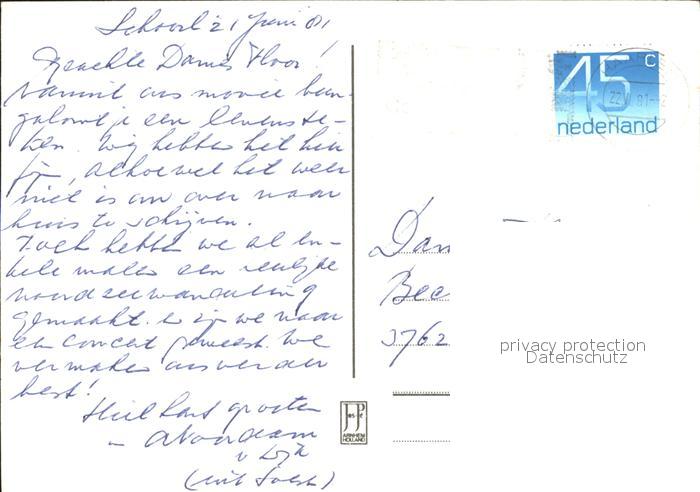 Schoorl 21 Juni 81
Geachte Dames Floor!
Vanuit ons mooie bun-
galowtje een levenste-
ken. Wij hebben het hier
fijn, alhoewel het weer
niet is om over naar
huis te schrijven.
Toch hebben we al en-
kele malen een heerlijke
noordzeewandeling
gemaakt. & zijn we naar
een concert geweest. We
vermaken ons verder
best!
Heel hart groeten
- A Noordam
v Dijk
(uit Soest)
45 c
nederland
22 VI 81
Dam
Bec
3762
privacy protection
Datenschutz
JosPé
ARNHEM
HOLLAND